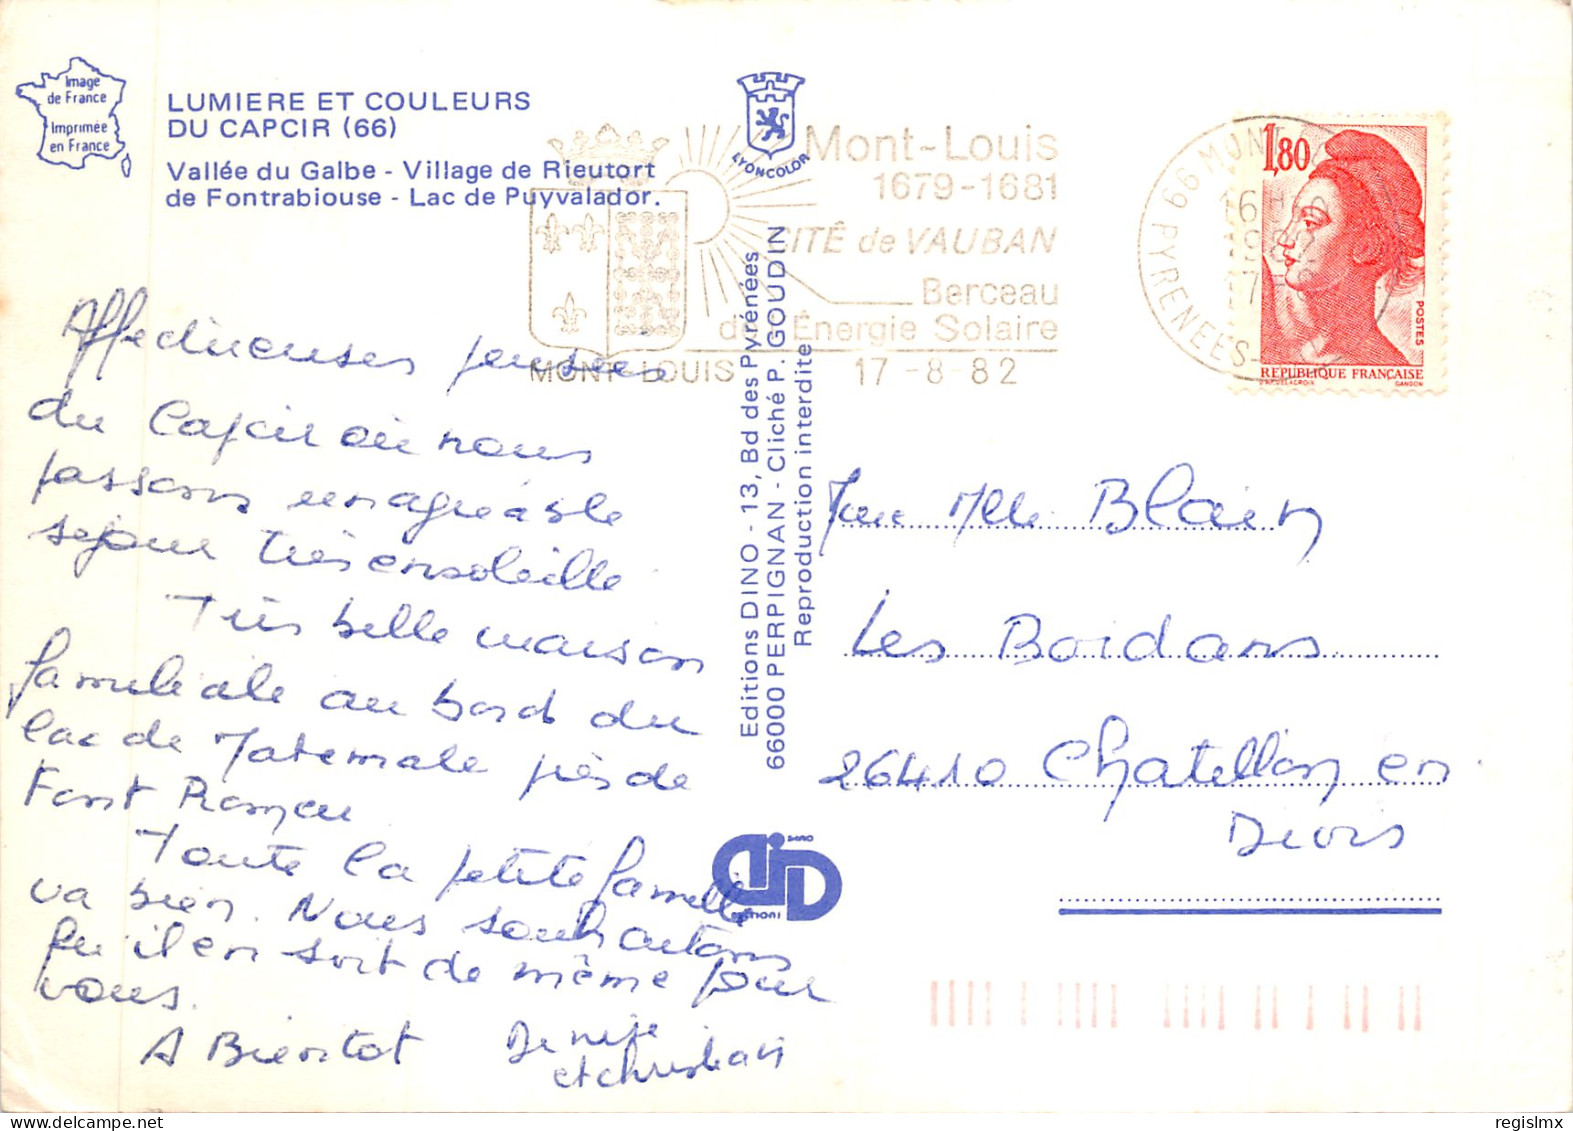 Image
de France
Imprimée
en France
LUMIERE ET COULEURS
DU CAPCIR (66)
Vallée du Galbe - Village de Rieutort
de Fontrabiouse - Lac de Puyvalador.
LYONCOLOR
Mont-Louis
1679-1681
CITÉ de VAUBAN
Berceau
de l'Énergie Solaire
MONT-LOUIS 17-8-82
66 MONT
PYRENEES-
16 H
1982
17-8
1,80
POSTES
REPUBLIQUE FRANÇAISE
D'APRES DELACROIX GANDON
Editions DINO - 13, Bd des Pyrénées
66000 PERPIGNAN - Cliché P. GOUDIN
Reproduction interdite
Affectueuses pensées
du Capcir où nous
passons un agréable
sejour très ensoleillé
Très belle maison
familiale au bord du
lac de Matemale près de
Font Romeu
Toute la petite famille
va bien. Nous souhaitons
qu'il en soit de même pour
vous.
A Bientot Denise
et christian
Mlle Blain
Les Boidans
26410 Chatillon en
Diois
DINO
EDITIONS
regislmx